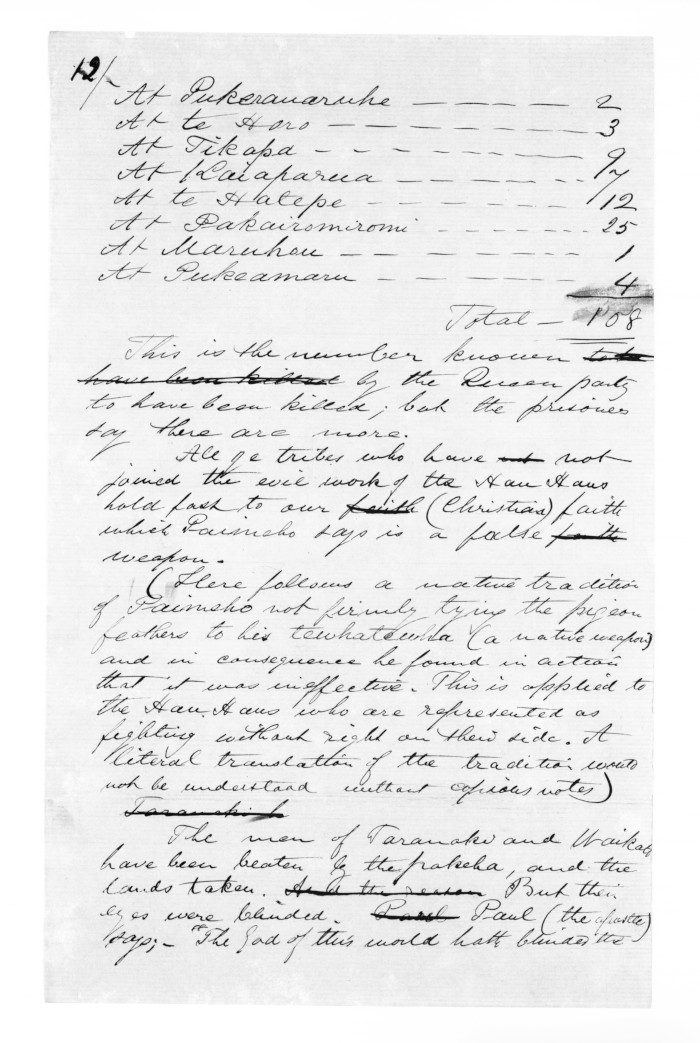 12/
At Pukeranaruhe — — — — — 2
At te Horo — — — — — — 3
At Tikapa — — — — — — 9
At Kaiaparua — — — — — 7
At te Hatepe — — — — — 12
At Pakairomiromi — — — — 25
At Maruhou — — — — — 1
At Pukeamaru — — — — — 4
Total — 108
This is the number known to be
have been killed by the Queen party
to have been killed; but the prisoners
say there are more.
All ye tribes who have not not
joined the evil work of the Hau Haus
hold fast to our faith (Christian) faith
which Paimeho says is a false faith
weapon.
(Here follows a native tradition
of Paimeho not firmly tying the pigeon
feathers to his tewhatewha (a native weapon)
and in consequence he found in action
that it was ineffective. This is applied to
the Hau. Haus who are represented as
fighting without right on their side. A
literal translation of the tradition would
not be understood without copious notes)
The men of Taranaki and Waikato
have been beaten by the pakeha, and the
lands taken. And the reason But their
eyes were blinded. Paul Paul (the apostle)
says; – "The God of this world hath blinded the